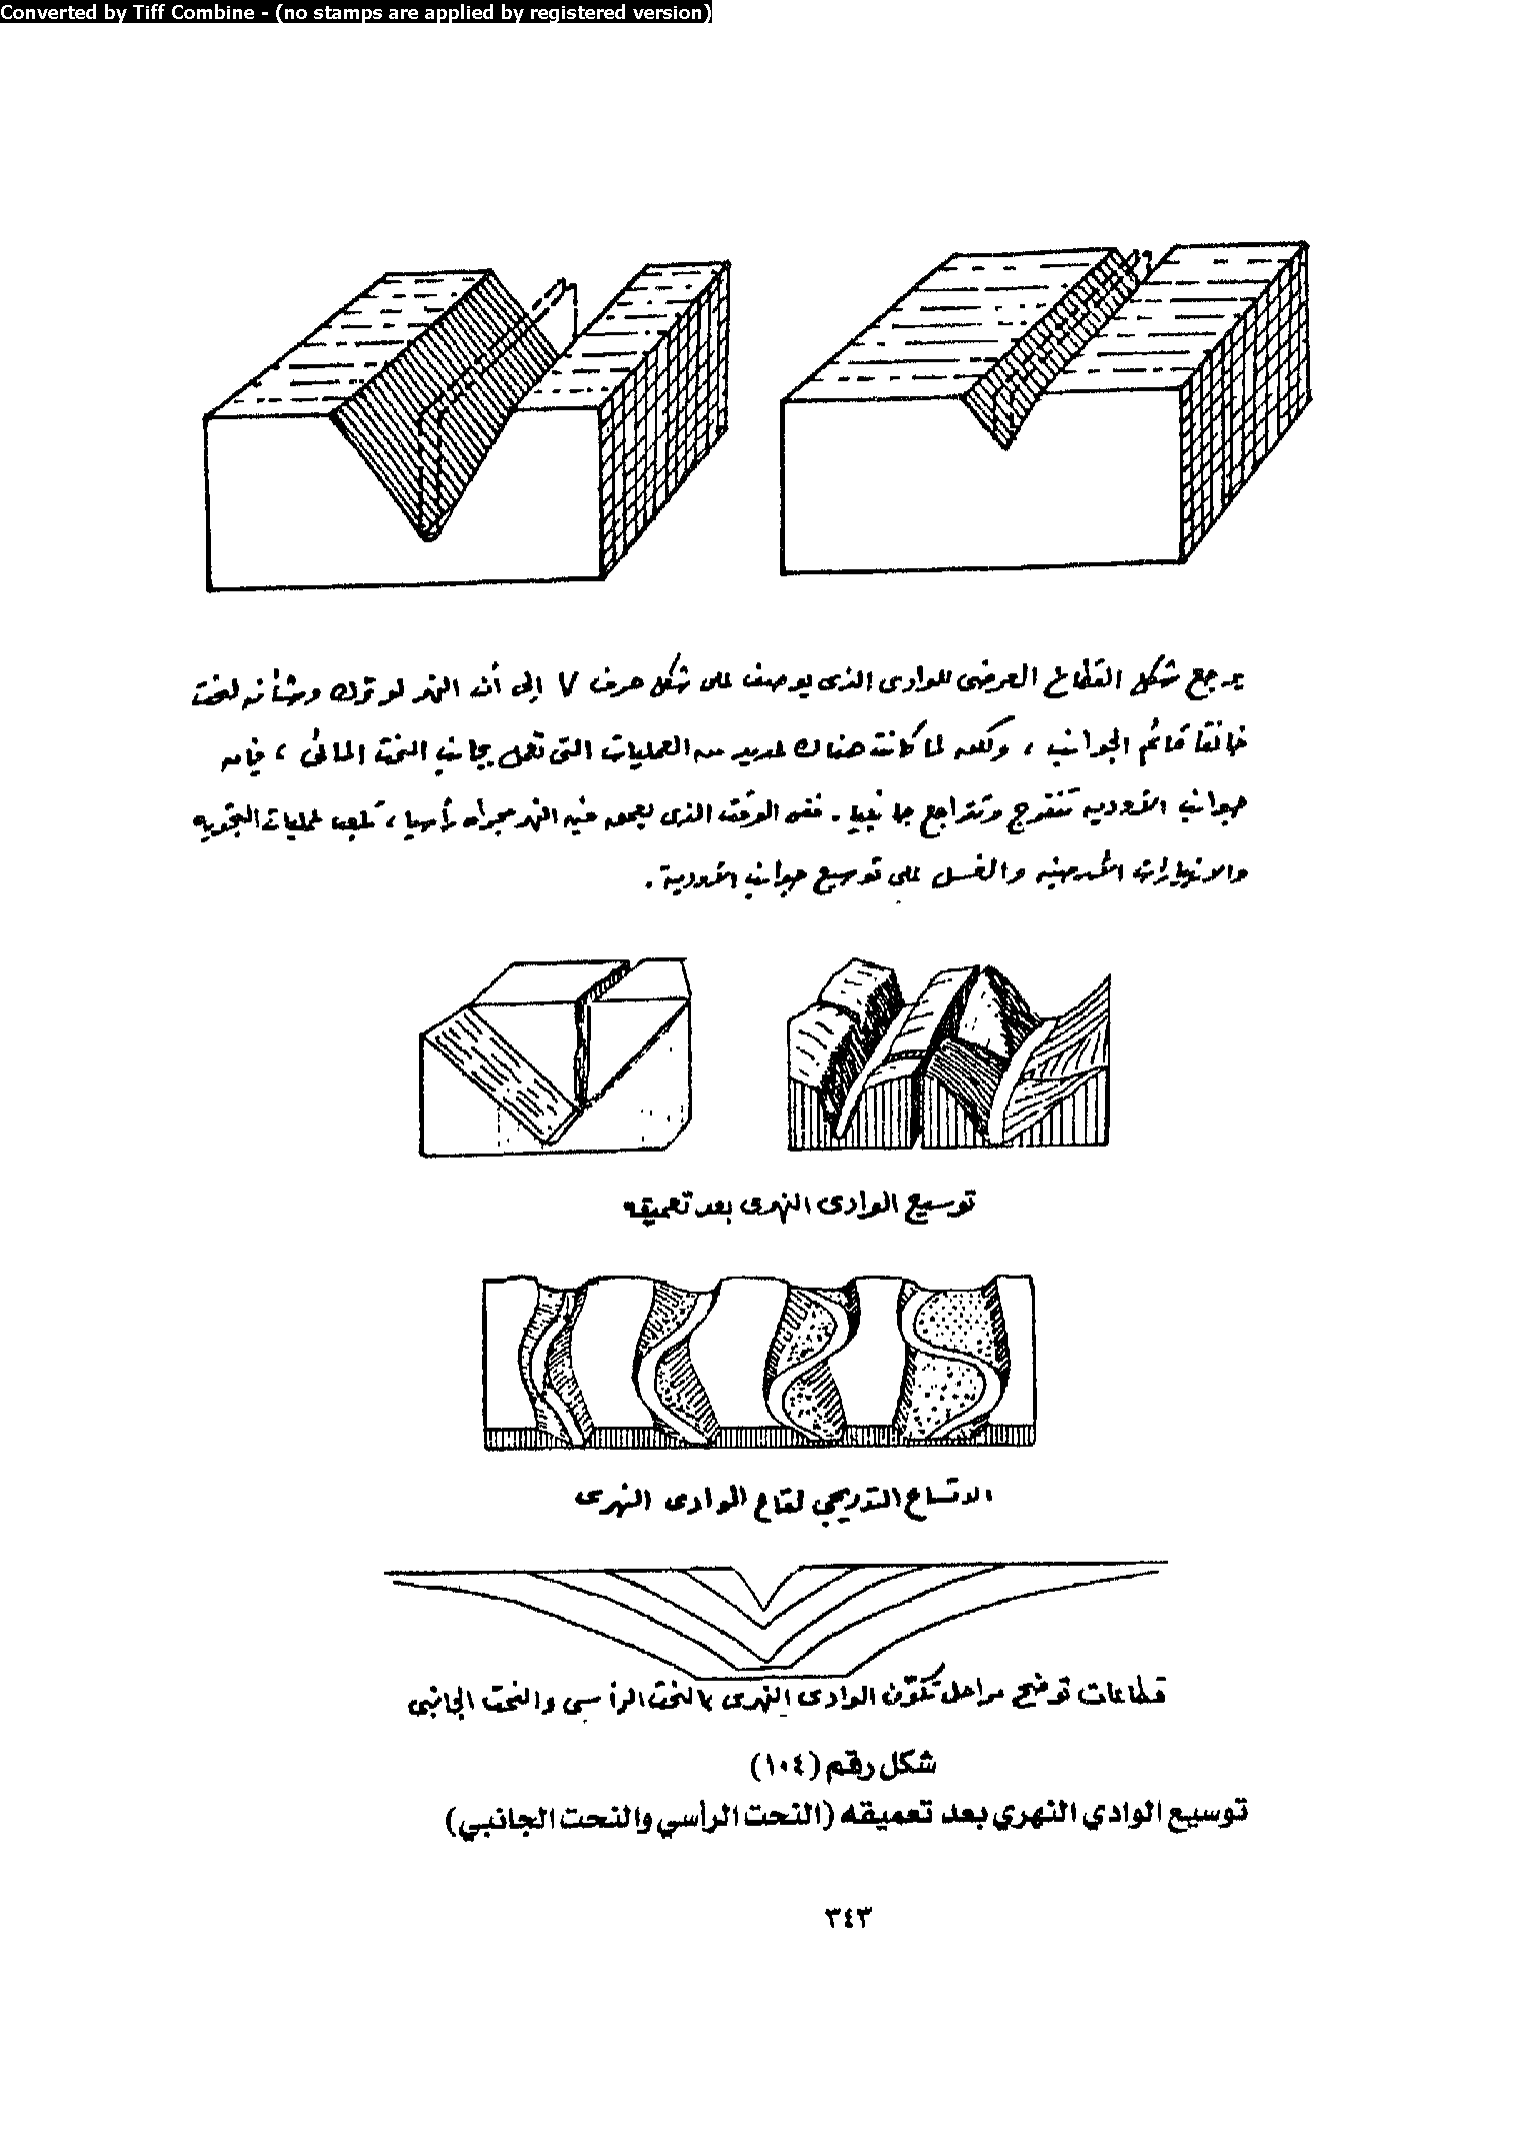 Converted by Tiff Combine - (no stamps are applied by registered version)
يرجع شكل القطاع العرضى للوادى الذى يوصف على شكل حرف V إلى أن النهر لو ترك وشأنه لنحت
خانقا قائم الجوانب ، ولكن لما كانت هناك عديد من العمليات التى تعمل بجانب النحت المائى ، فإن
جوانب الأودية تنفرج وتتراجع جانبيا . ففى الوقت الذى يعمق فيه النهر مجراه رأسيا ، تلعب عمليات التجوية
والانهيارات الأرضية والغسل على توسيع جوانب الأودية .
توسيع الوادى النهرى بعد تعميقه
الاتساع التدريجي لقاع الوادى النهرى
قطاعات توضح مراحل تكوّن الوادى النهرى بالنحت الرأسى والنحت الجانبى
شكل رقم (١٠٤)
توسيع الوادي النهري بعد تعميقه (النحت الرأسي والنحت الجانبي)
٣٤٣